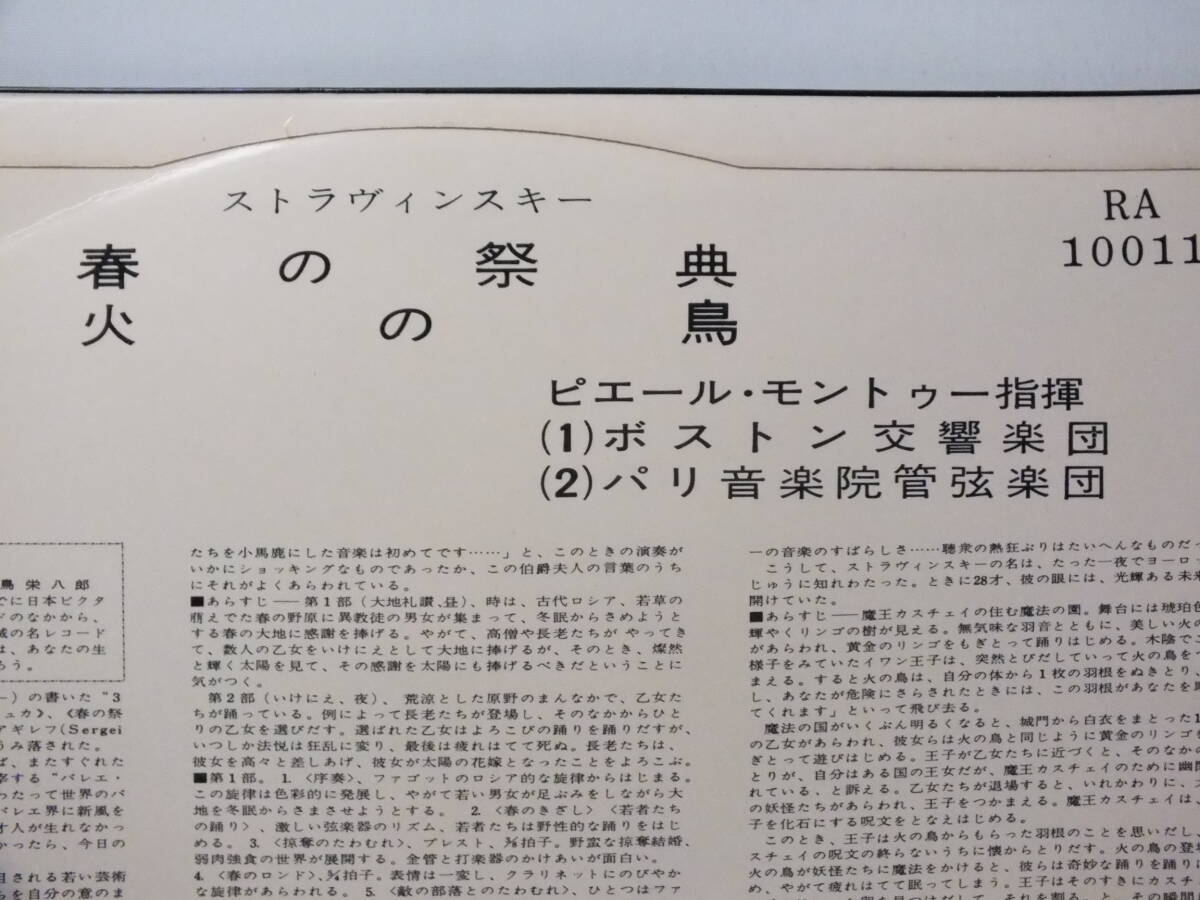 ストラヴィンスキー
春の祭典
火の鳥
RA
10011
ピエール・モントゥー指揮
(1)ボストン交響楽団
(2)パリ音楽院管弦楽団
鳥栄八郎
でに日本ビクタ
ドのなかから、
の名レコード
は、あなたの生
ろう。
ー）の書いた“3
ュカ〉、〈春の祭
アギレフ(Sergei
うみ落された。
ば、またすぐれた
宰する“バレエ・
わたって世界のバ
バレエ界に新風を
才人が生れなかっ
かったら、今日の
目される若い芸術
らを自分の意のま
たちを小馬鹿にした音楽は初めてです……」と、このときの演奏が
いかにショッキングなものであったか、この伯爵夫人の言葉のうち
にそれがよくあらわれている。
■あらすじ──第1部（大地礼讃、昼）、時は、古代ロシア、若草の
萠えでた春の野原に異教徒の男女が集まって、冬眠からさめようと
する春の大地に感謝を捧げる。やがて、高僧や長老たちが やってき
て、数人の乙女をいけにえとして大地に捧げるが、そのとき、燦然
と輝く太陽を見て、その感謝を太陽にも捧げるべきだということに
気がつく。
第2部（いけにえ、夜）、荒涼とした原野のまんなかで、乙女た
ちが踊っている。例によって長老たちが登場し、そのなかからひと
りの乙女を選びだす。選ばれた乙女はよろこびの踊りを踊りだすが、
いつしか法悦は狂乱に変り、最後は疲れはてて死ぬ。長老たちは、
彼女を高々と差しあげ、彼女が太陽の花嫁となったことをよろこぶ。
■第1部。 1.〈序奏〉、ファゴットのロシア的な旋律からはじまる。
この旋律は色彩的に発展し、やがて若い男女が足ぶみをしながら大
地を冬眠からさまさせようとする。 2.〈春のきざし〉〈若者たち
の踊り〉、激しい弦楽器のリズム、若者たちは野性的な踊りをはじ
める。 3.〈掠奪のたわむれ〉、プレスト、拍子。野蛮な掠奪結婚、
弱肉強食の世界が展開する。金管と打楽器のかけあいが面白い。
4.〈春のロンド〉、拍子。表情は一変し、クラリネットにのびやか
な旋律があらわれる。 5.〈敵の部落とのたわむれ〉、ひとつはファ
ーの音楽のすばらしさ……聴衆の熱狂ぶりはたいへんなものだっ
こうして、ストラヴィンスキーの名は、たった一夜でヨーロッ
じゅうに知れわたった。ときに28才、彼の眼には、光輝ある未来
開けていた。
■あらすじ──魔王カスチェイの住む魔法の園。舞台には琥珀色
輝やくリンゴの樹が見える。無気味な羽音とともに、美しい火の
があらわれ、黄金のリンゴをもぎとって踊りはじめる。木陰で
様子をみていたイワン王子は、突然とびだしていって火の鳥を
まえる。すると火の鳥は、自分の体から1枚の羽根をぬきとり、
し、あなたが危険にさらされたときには、この羽根があなたを
てくれます」といって飛び去る。
魔法の国がいくぶん明るくなると、城門から白衣をまとった1
の乙女があらわれ、彼女らは火の鳥と同じように黄金のリンゴを
ぎとって遊びはじめる。王子が乙女たちに近づくと、そのなかの
とりが、自分はある国の王女だが、魔王カスチェイのために幽閉
れている、と訴える。乙女たちが退場すると、いれかわりに、
の妖怪たちがあらわれ、王子をつかまえる。魔王カスチェイは、
子を化石にする呪文をとなえはじめる。
このとき、王子は火の鳥からもらった羽根のことを思いだし、
スチェイの呪文の終らないうちに懐からとりだす。火の鳥の登場
火の鳥が妖怪たちに魔法をかけると、彼らは奇妙な踊りを踊り
め、やがて疲れはてて眠ってしまう。王子はそのすきにカスチ